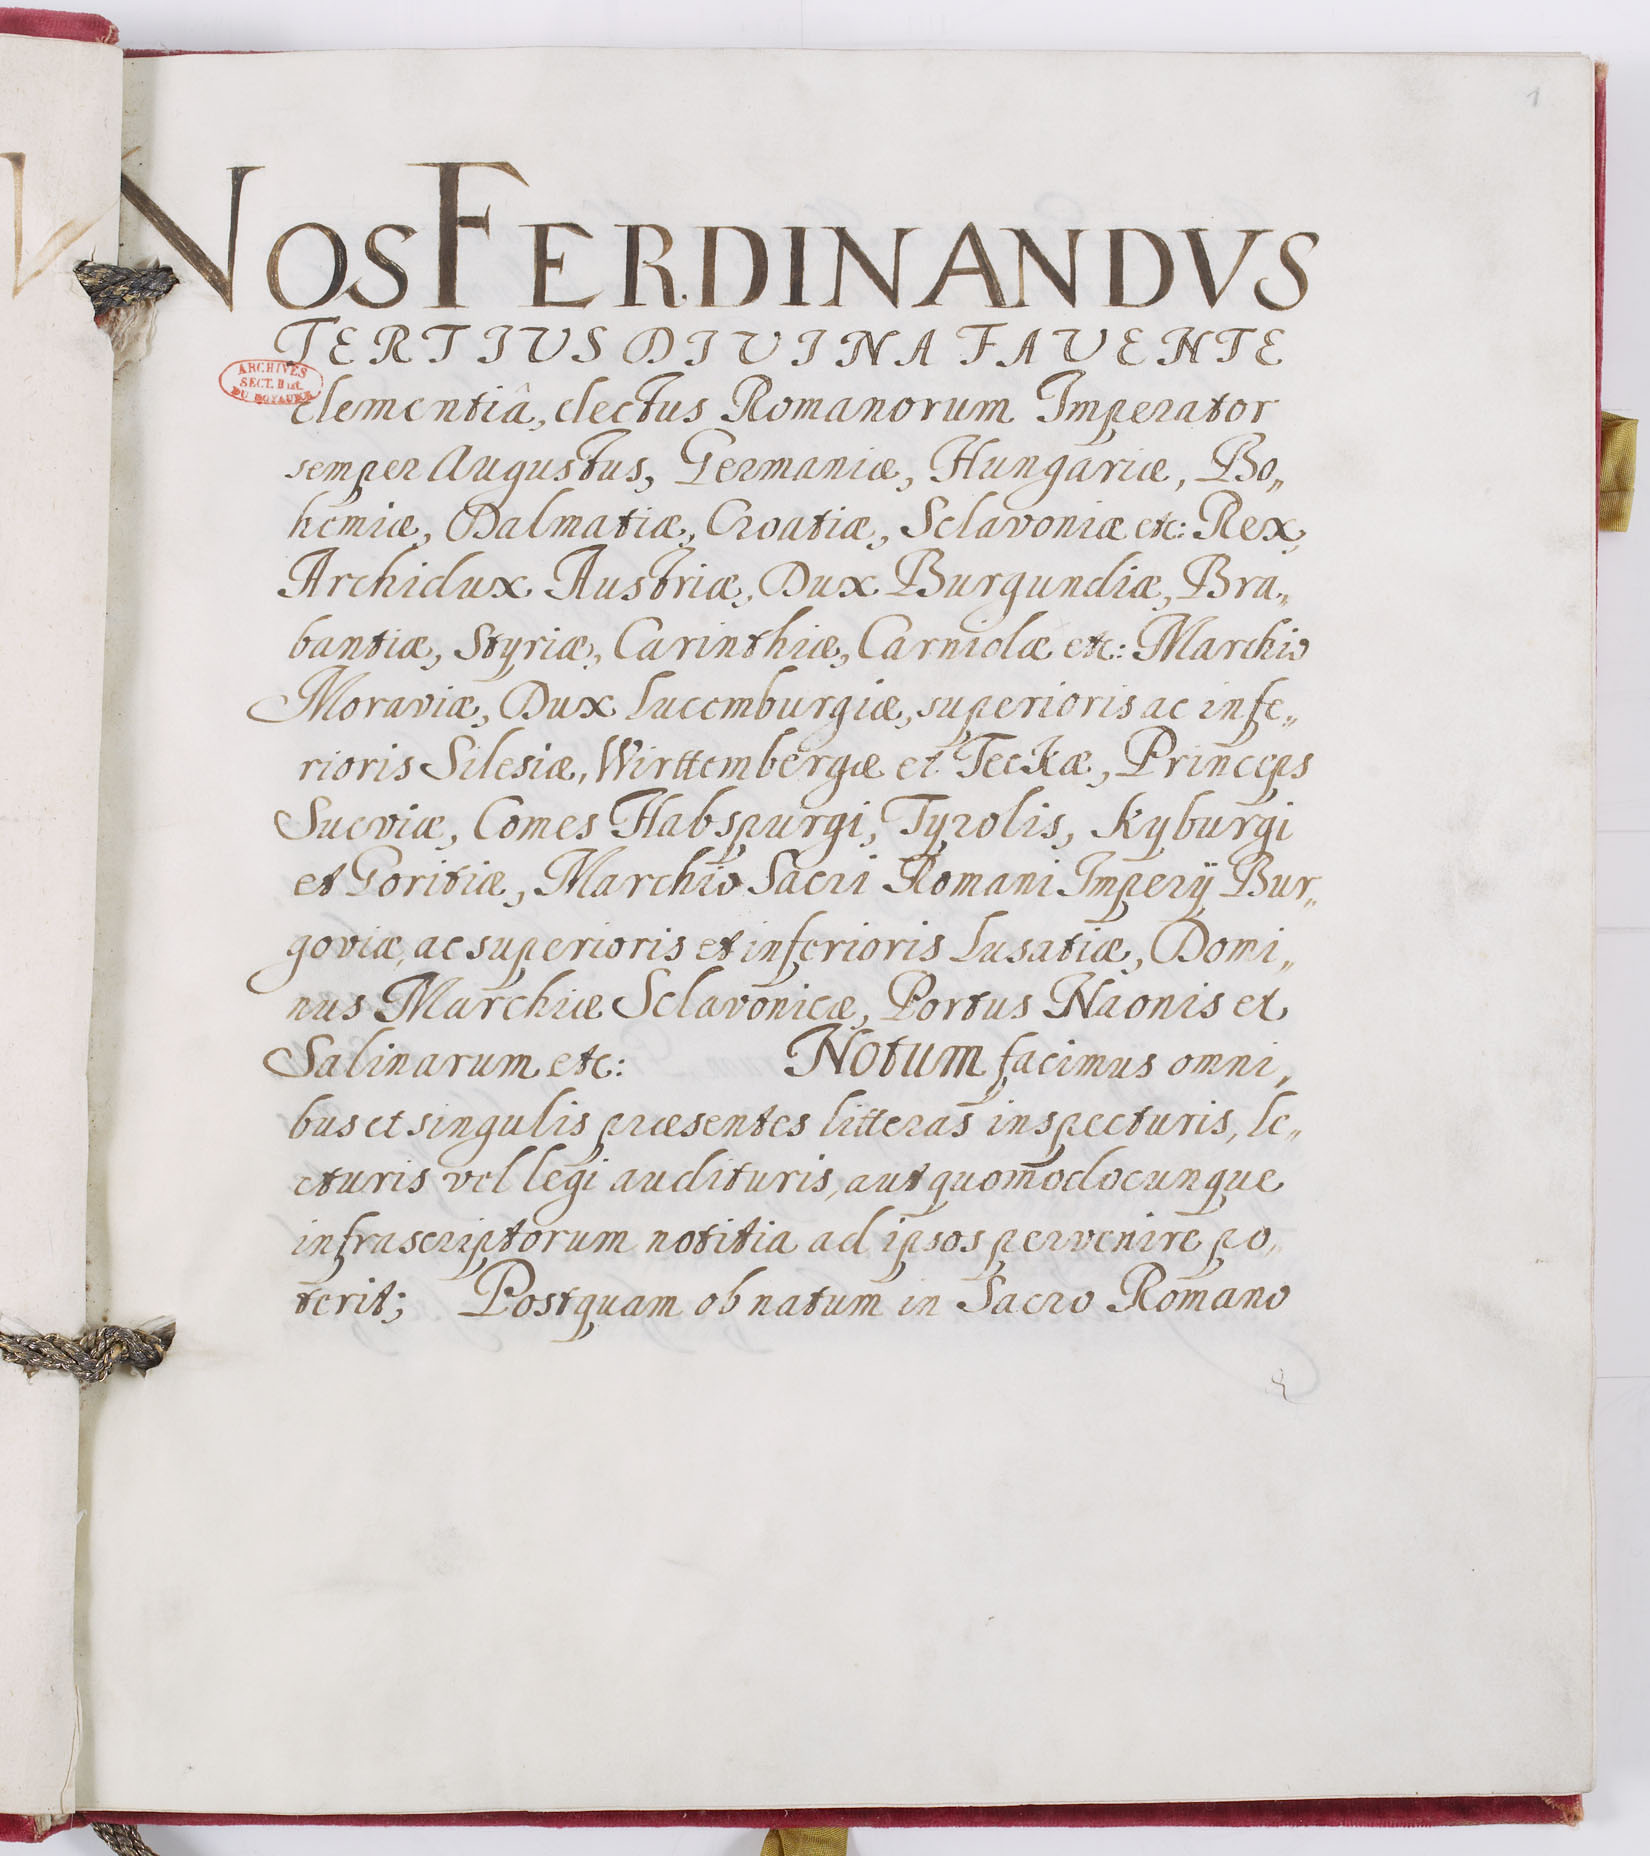 1
NOS FERDINANDVS
TERTIUS DIVINA FAVENTE
ARCHIVES
SECT. HIST.
DU ROYAUME
clementiâ, electus Romanorum Imperator
semper Augustus, Germaniæ, Hungariæ, Bo„
hemiæ, Dalmatiæ, Croatiæ, Sclavoniæ etc: Rex,
Archidux Austriæ, Dux Burgundiæ, Bra„
bantiæ, Styriæ, Carinthiæ, Carniolæ etc: Marchio
Moraviæ, Dux Lucemburgiæ, superioris ac infe„
rioris Silesiæ, Wirttembergæ et Teckæ, Princeps
Sueviæ, Comes Habspurgi, Tyrolis, Kyburgi
et Goritiæ, Marchio Sacri Romani Imperÿ Bur„
goviæ, ac superioris et inferioris Lusatiæ, Domi„
nus Marchiæ Sclavonicæ, Portus Naonis et
Salinarum etc: Notum facimus omni„
bus et singulis præsentes litteras inspecturis, le„
cturis vel legi audituris, aut quomodocunque
infrascriptorum notitia ad ipsos pervenire po„
terit; Postquam ob natum in Sacro Romano